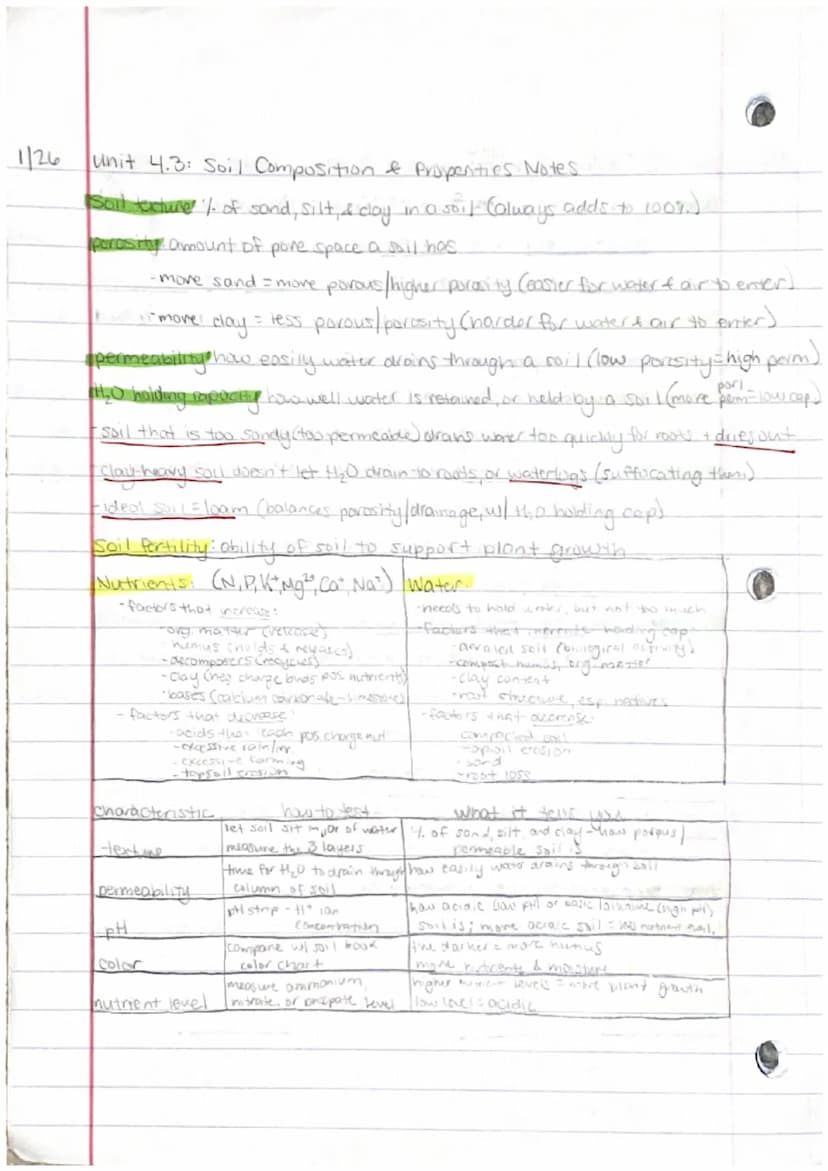 1/26 Unit 4.3: Soil Composition & Properties Notes
Soil texture % of sand, silt, & clay in a soil (always adds to 100%)
porosity amount of pore space a soil has
-more sand = more porous/higher porosity (easier for water & air to enter)
-more clay = less porous/porosity (harder for water & air to enter)
permeability how easily water drains through a soil (low porosity=high perm)
H₂O holding capacity how well water is retained, or held by a soil (more por/perm=low cap)
-soil that is too sandy (too permeable) drains water too quickly for roots + dries out
-clay-heavy soil doesn't let H₂O drain to roots, or waterlogs (suffocating them)
-ideal soil = loam (balances porosity/drainage, w/ H₂O holding cap)
Soil fertility: ability of soil to support plant growth
Nutrients: (N, P, K⁺, Mg²⁺, Ca⁺, Na⁺)
-factors that increase:
-org. matter (release)
humus (holds & releases)
-decomposers (recycles)
-clay (neg charge binds pos nutrients)
-bases (calcium carbonate-limestone)
-factors that decrease:
-acids that leach pos. charge nut
-excessive rain/irr
-excessive farming
-topsoil erosion
Water
-needs to hold water, but not too much
-factors that increase holding cap
-aerated soil (biological activity)
-compost, humus, org. matter
-clay content
-root structure, esp. natives
-factors that decrease:
compacted soil
-topsoil erosion
-sand
-root loss
characteristic how to test what it tells you
texture let soil sit in jar of water measure the 3 layers % of sand, silt, and clay-how porous/ permeable soil is
permeability time for H₂O to drain through column of soil how easily water drains through soil
pH pH strip - H⁺ ion concentration how acidic (low pH) or basic/alkaline (high pH) soil is; more acidic soil = less nutrient avail.
color compare w/ soil book color chart the darker = more humus more nutrients & moisture
nutrient level measure ammonium, nitrate, or level higher nutrient levels = more plant growth low level = acidic